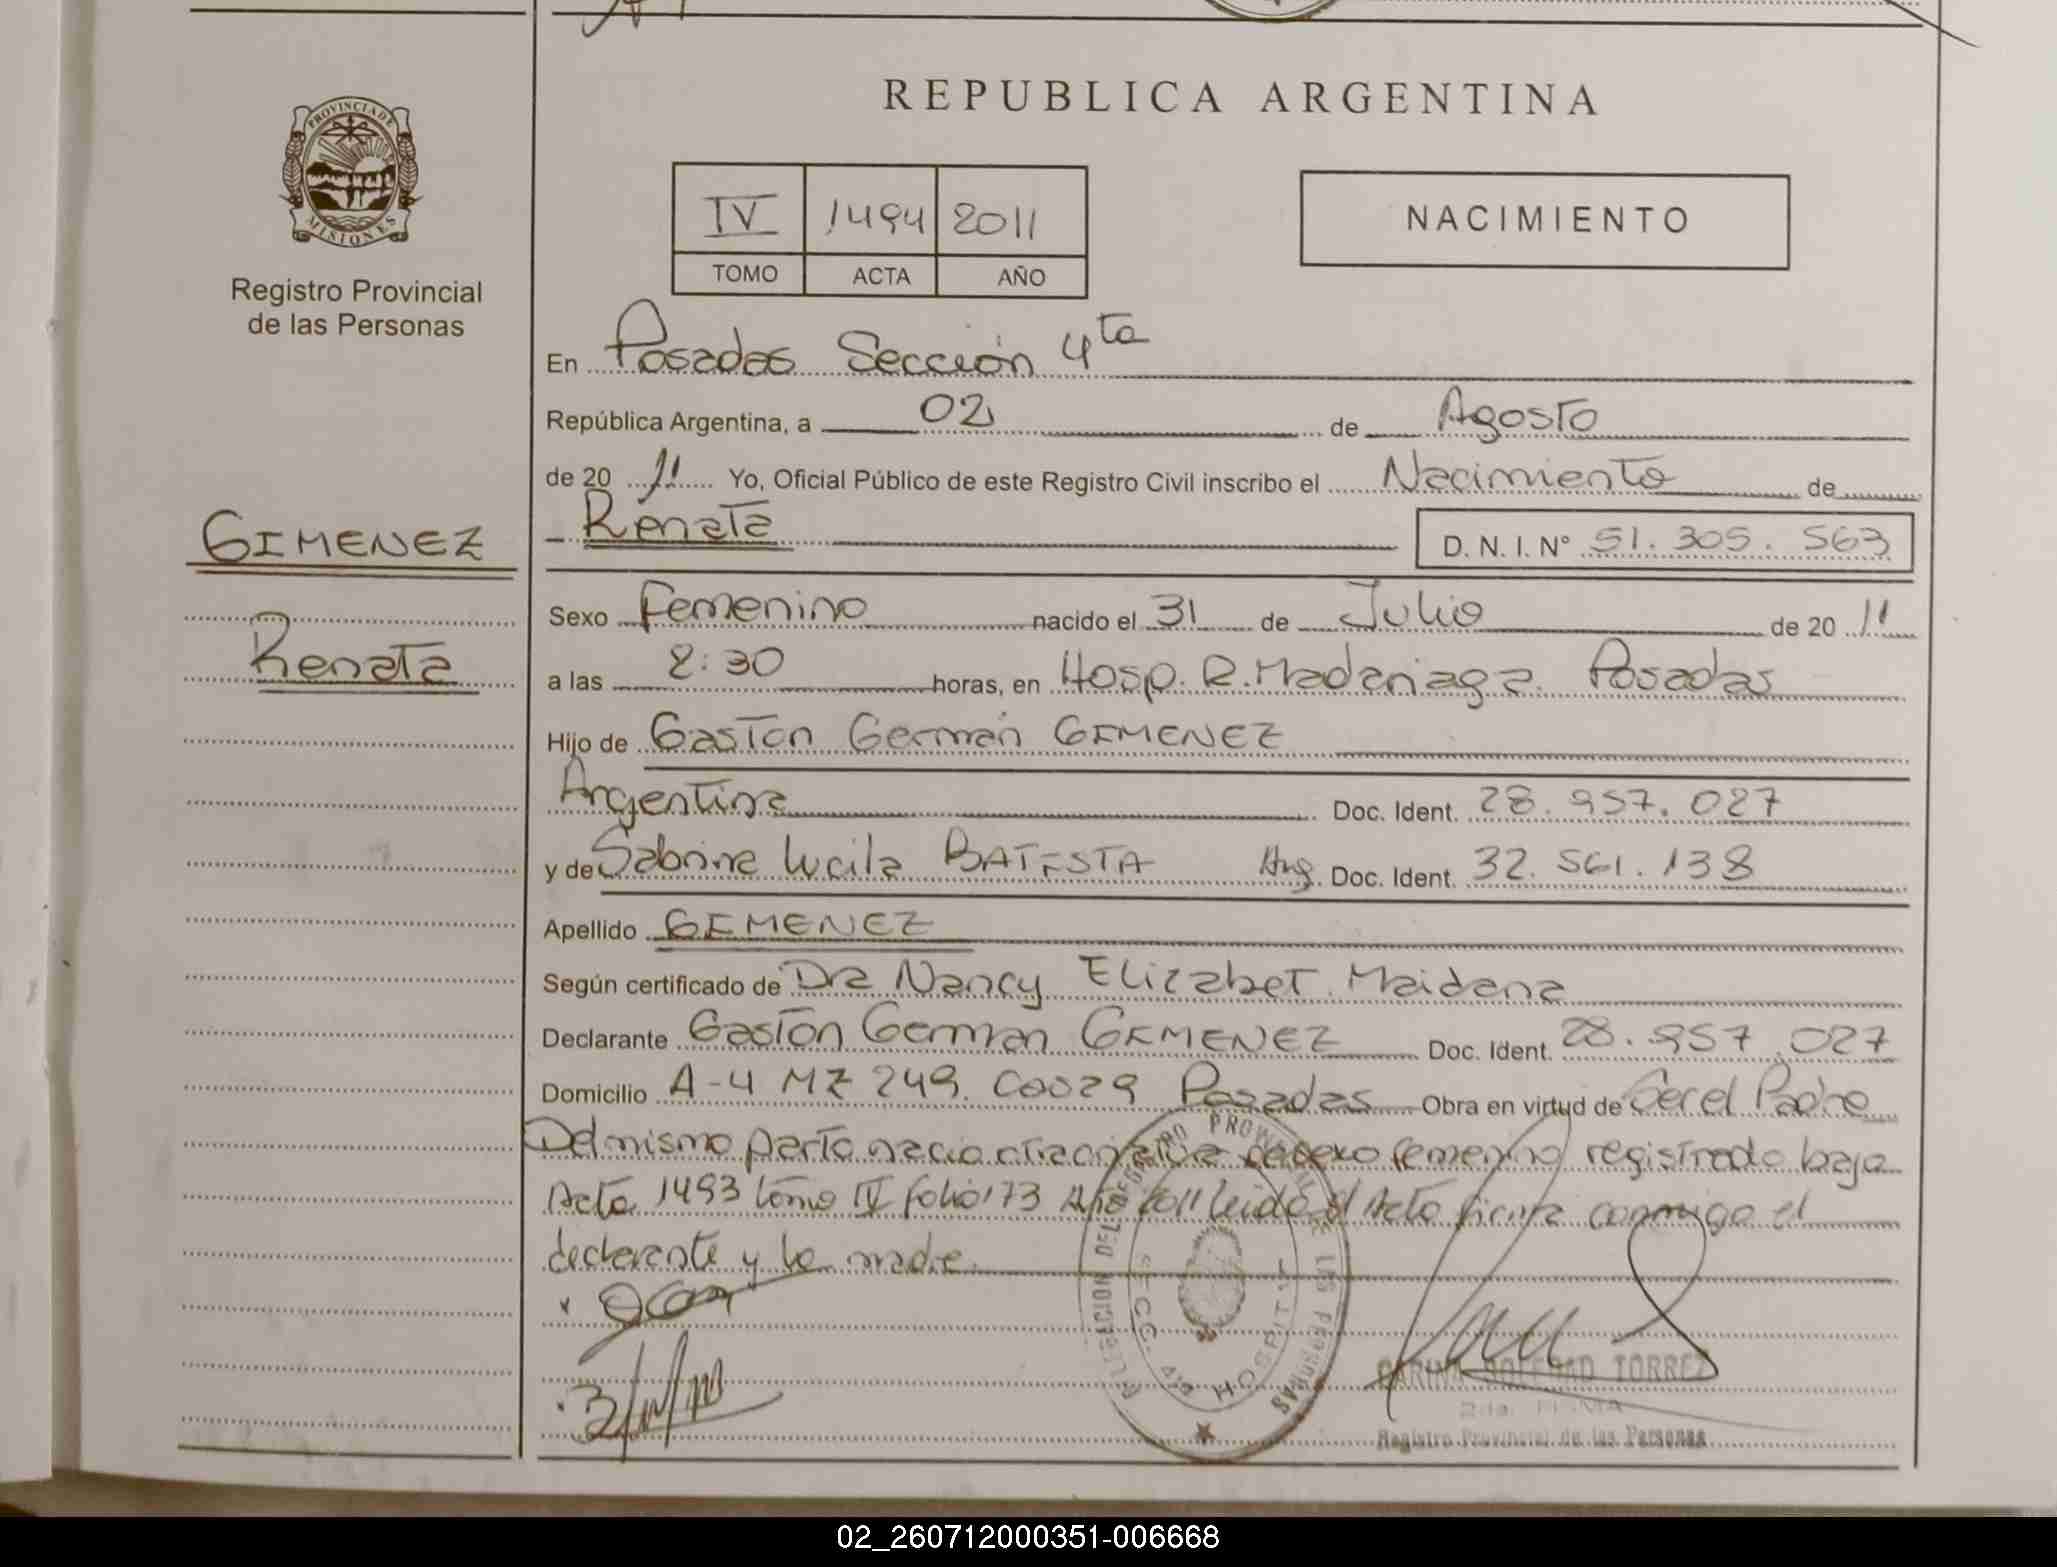 REPUBLICA ARGENTINA
PROVINCIA DE
MISIONES
Registro Provincial
de las Personas
IV 1494 2011
TOMO ACTA AÑO
NACIMIENTO
En Posadas Sección 4ta
República Argentina, a 02 de Agosto
de 20 11 Yo, Oficial Público de este Registro Civil inscribo el Nacimiento de
Renata D. N. I. N° 51.305.563
GIMENEZ
Renata
Sexo Femenino nacido el 31 de Julio de 20 11
a las 2:30 horas, en Hosp. R. Madariaga. Posadas
Hijo de Gastón Germán GIMENEZ
Argentina Doc. Ident. 28.957.027
y de Sabrina Lucila BATISTA Arg. Doc. Ident. 32.561.138
Apellido GIMENEZ
Según certificado de Dra Nancy Elizabet Maidana
Declarante Gastón German GIMENEZ Doc. Ident. 28.957.027
Domicilio A-4 MZ 249. C0029 Posadas Obra en virtud de Ser el Padre
Del mismo parto nacio otra de sexo femenino registrado bajo
Acta 1493 tomo IV folio 173 Año 2011 Leída el Acta firma conmigo el
declarante y la madre.
DELEGACION DEL REGISTRO PROVINCIAL DE LAS PERSONAS
SECC. 4ta HOSPITAL
CARINA SOLEDAD TORREZ
2da. FIRMA
Registro Provincial de las Personas
02_260712000351-006668